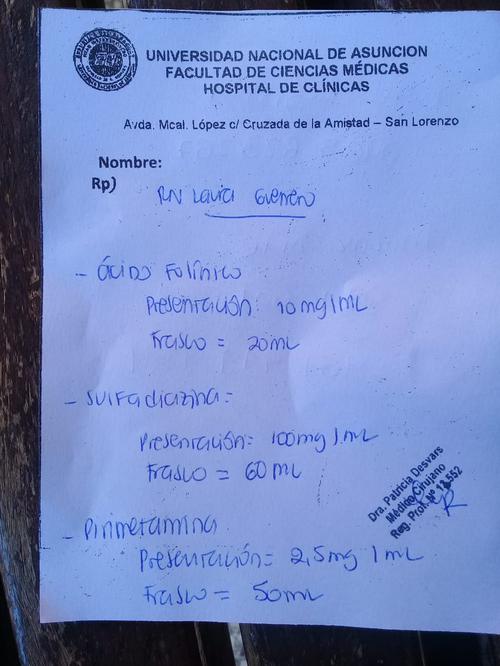 UNIVERSIDAD NACIONAL DE ASUNCION
FACULTAD DE CIENCIAS MÉDICAS
HOSPITAL DE CLÍNICAS
Avda. Mcal. López c/ Cruzada de la Amistad – San Lorenzo
Nombre:
Rp)
RN Laura Guerrero
- Ácido Folínico
Presentación: 10mg/mL
Frasco = 20mL
- Sulfadiazina =
Presentación = 100mg/mL
Frasco = 60mL
Dra. Patricia Desvars
Médico Cirujano
Reg. Prof. Nº 13.552
- Pirimetamina
Presentación = 2,5mg/mL
Frasco = 50mL